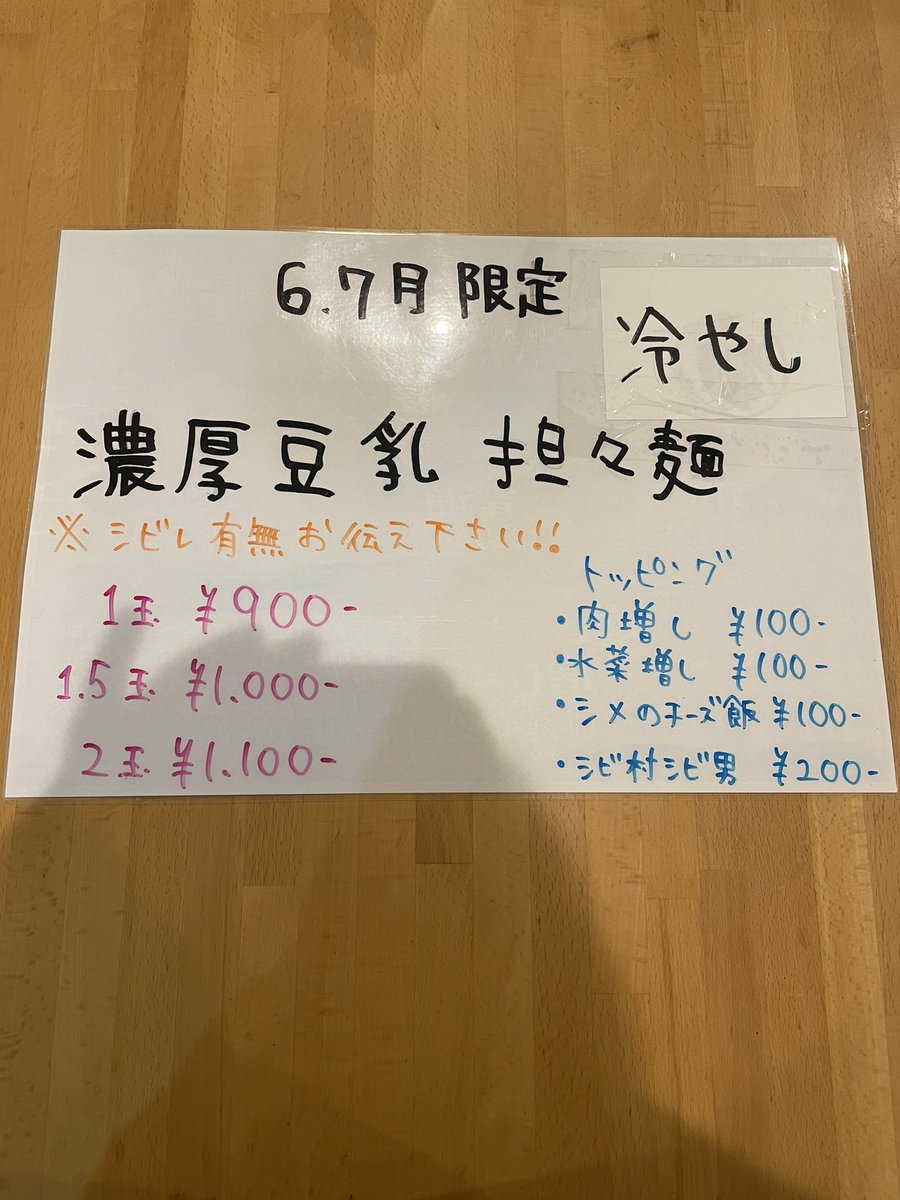 6.7月 限定
冷やし
濃厚豆乳 担々麺
※シビレ有無お伝え下さい!!
1玉 ¥900-
1.5玉 ¥1.000-
2玉 ¥1.100-
トッピング
・肉増し ¥100-
・水菜増し ¥100-
・シメのチーズ飯 ¥100-
・シビ村シビ男 ¥200-